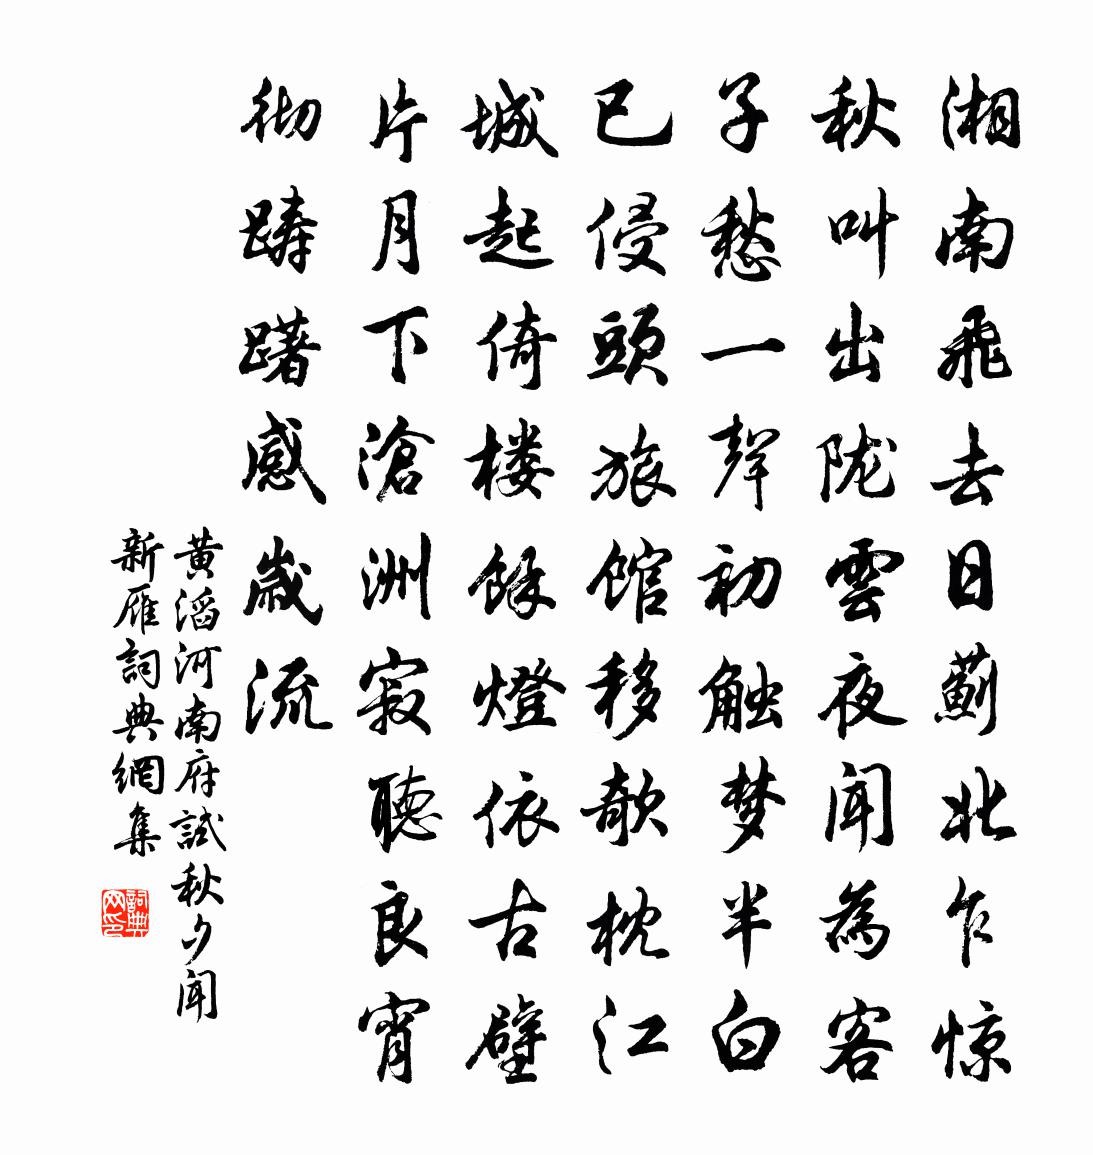 湘南飛去日薊北乍惊
秋叫出陇雲夜聞為客
子愁一聲初触梦半白
已侵頭旅馆移欹枕江
城起倚楼餘燈依古壁
片月下滄洲寂聽良宵
彻踌躇感歲流
黄滔河南府試秋夕聞
新雁詞典網集
詞典网印